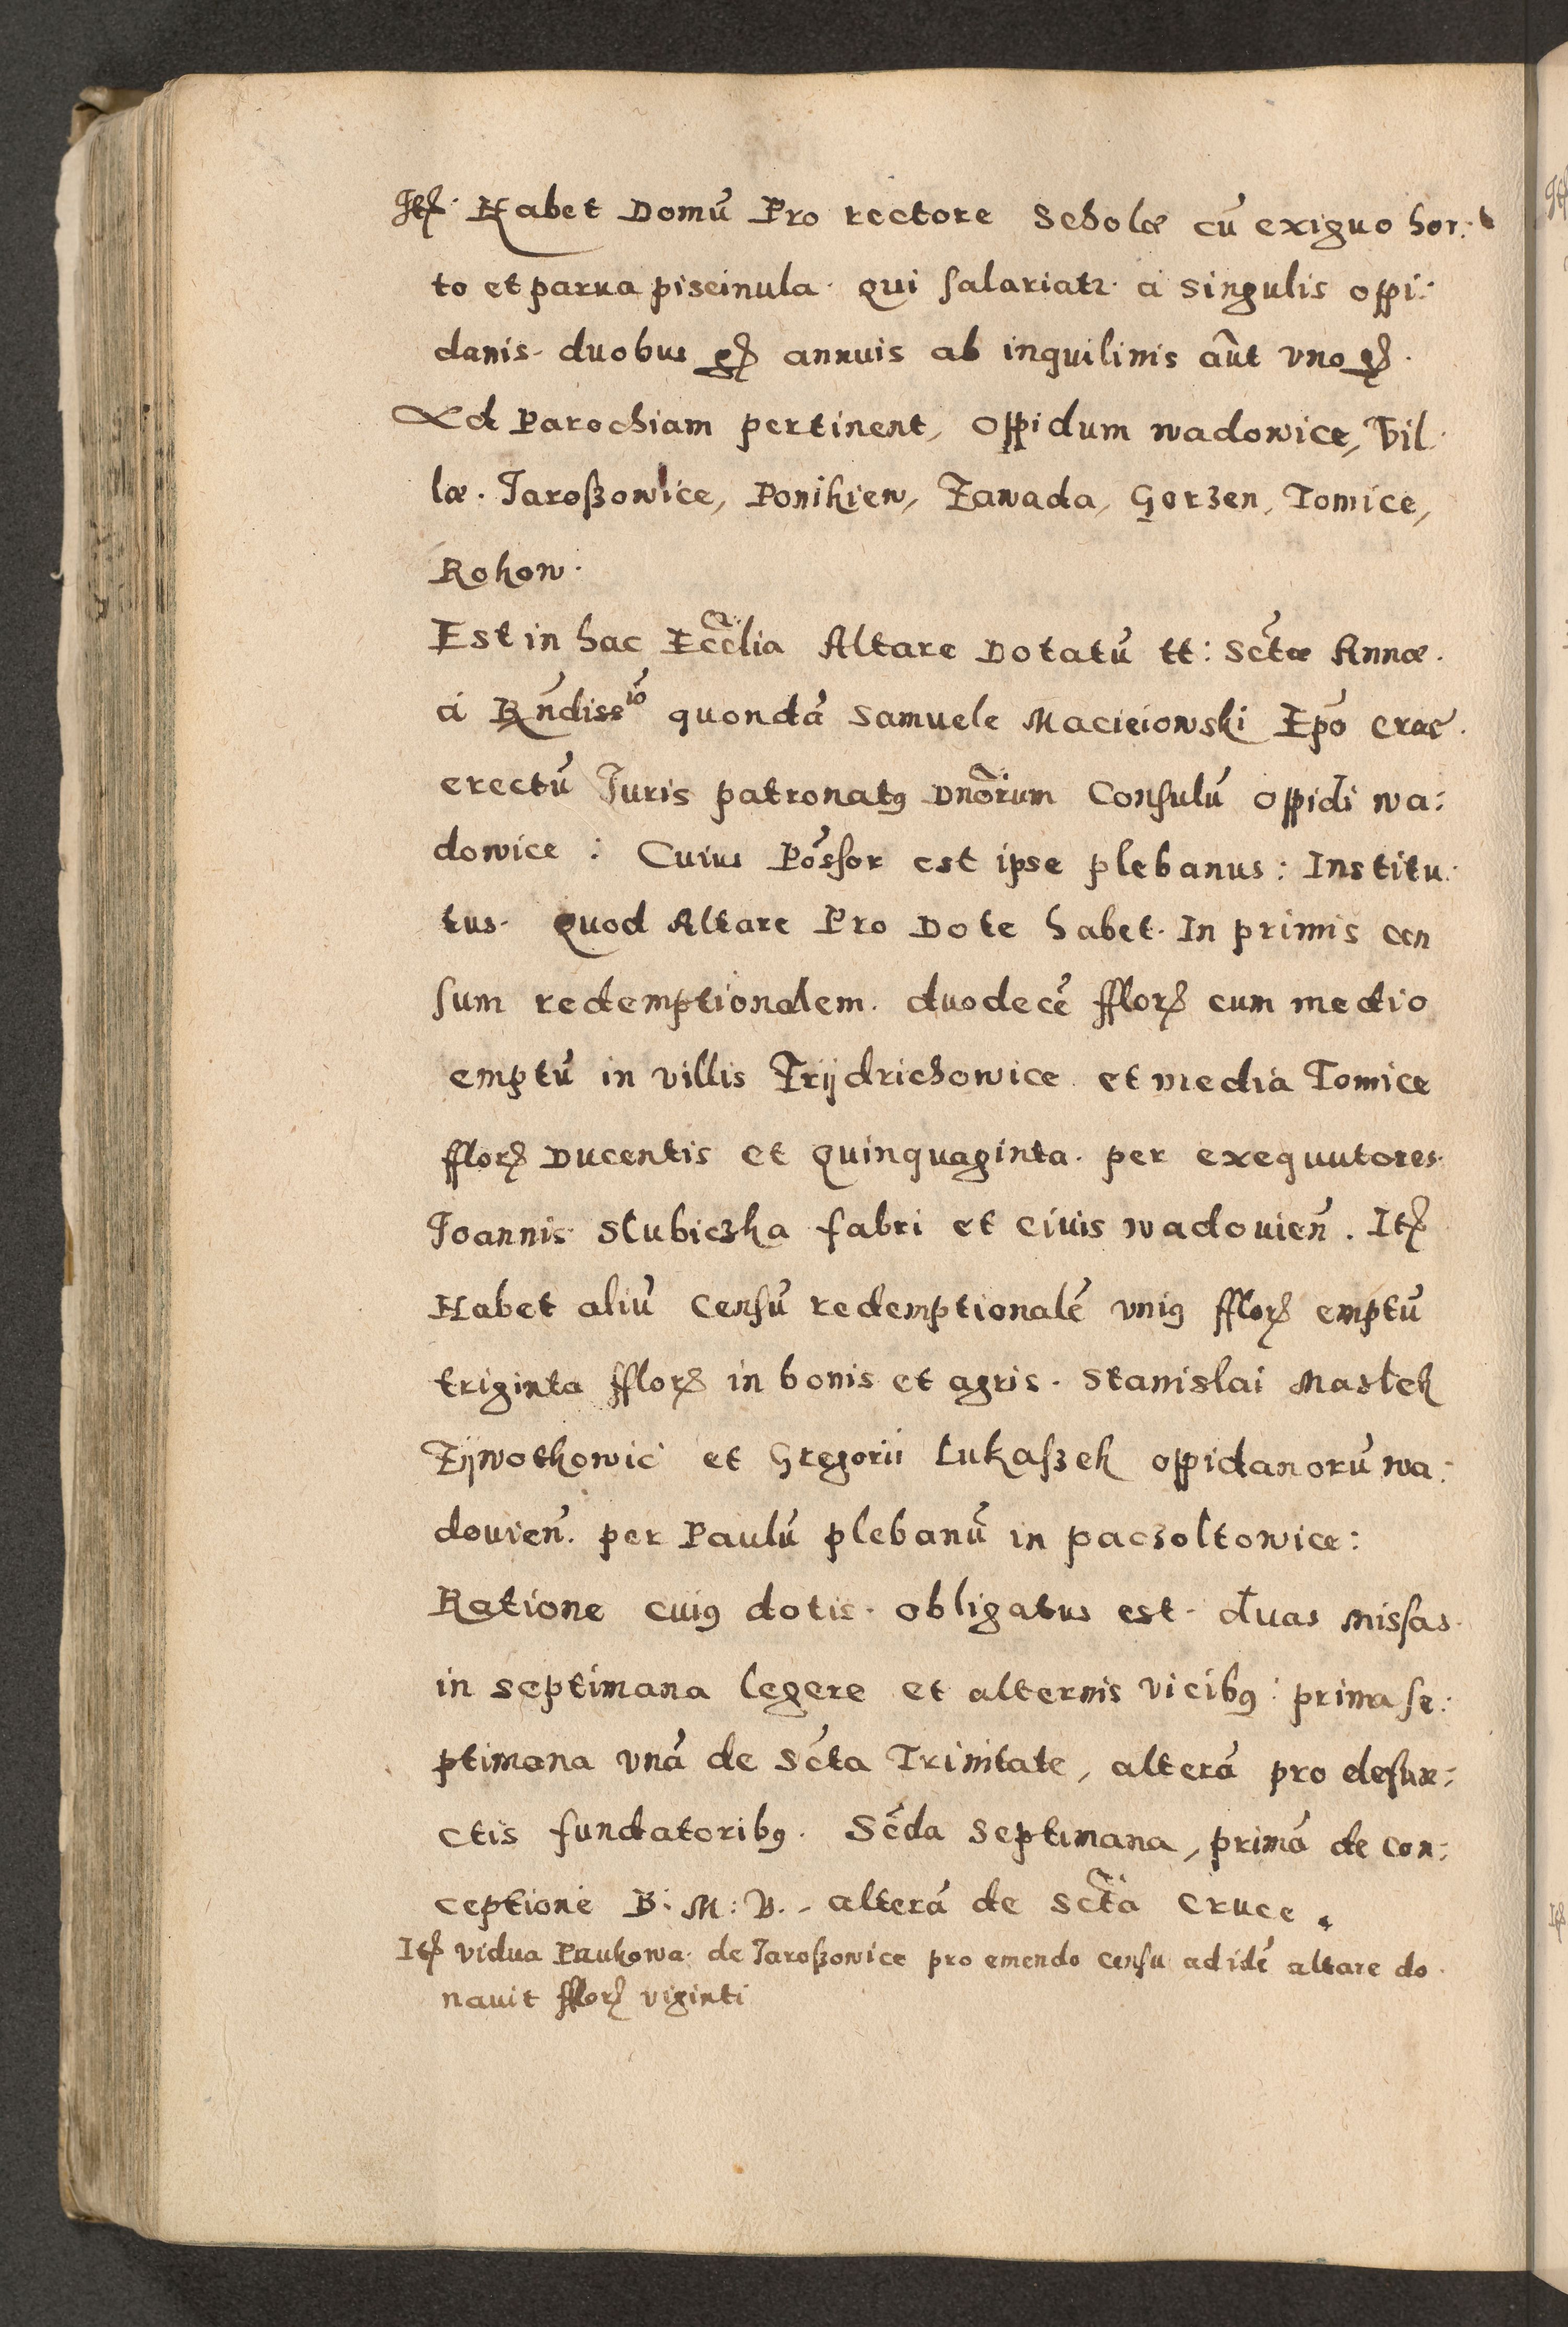 Itꝭ. Habet Domū Pro rectore Scholæ cū exiguo hor:
to et parua piscinula. qui salariatr. a singulis oppi:
danis. duobus gꝭ annuis ab inquilinis aūt vno gꝭ.
Ad Parochiam pertinent, Oppidum wadowice, Vil:
læ. Jaroßowice, Ponikiew, Zawada, Gorzen, Tomice,
Rokow.
Est in hac Eccĺia Altare Dotatū tt: Sctæ Annæ.
a Rndissío quondā Samuele Macieiowski Epō Crac.
erectū Juris patronatꝰ Dnōrum Consulū oppidi wa:
dowice: Cuius Pōssor est ipse plebanus: Institu:
tus. Quod Altare Pro Dote habet. In primis cen
sum redemptionalem. duodecē fflorꝭ cum medio
emptū in villis Frÿdrichowice et media Tomice
fflorꝭ Ducentis et Quinquaginta. per exequutores.
Joannis Slubiczka fabri et Ciuis wadouień. Itꝭ
Habet aliū Censū redemptionalē vniꝰ fflorꝭ emptū
triginta fflorꝭ in bonis et agris. Stanislai Maslek
Zÿwotkowic et Gregorii Lukaszek oppidanorū wa:
douień. per Paulū plebanū in paczoltowice:
Ratione cuiꝰ dotis. obligatus est. duas Missas.
in septimana legere et alternis vicibꝰ: prima se:
ptimana vnā de Sctā Trinitate, alterā pro defun:
ctis fundatoribꝰ. Scda Septimana, primā de Con:
ceptione B: M: V. alterā de Sctā Cruce.
Itꝭ vidua Paukowa de Jaroßowice pro emendo Censu ad idē altare do.
nauit fflorꝭ viginti